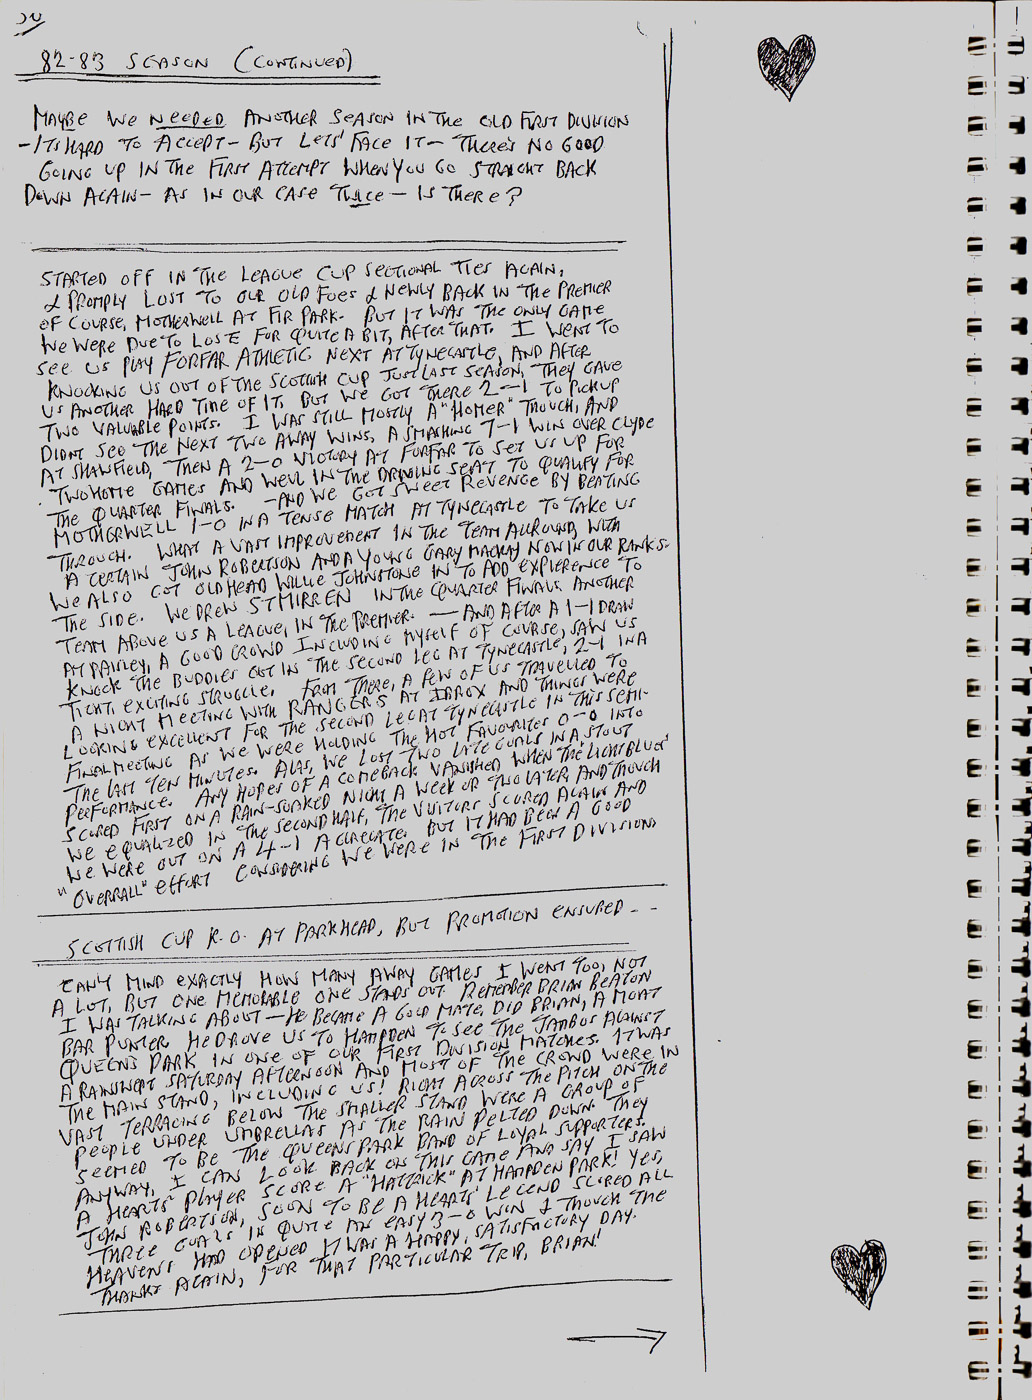 50
82-83 SEASON (CONTINUED)
MAYBE WE NEEDED ANOTHER SEASON IN THE OLD FIRST DIVISION
- ITS HARD TO ACCEPT - BUT LETS' FACE IT - THERE'S NO GOOD
GOING UP IN THE FIRST ATTEMPT WHEN YOU GO STRAIGHT BACK
DOWN AGAIN - AS IN OUR CASE TWICE - IS THERE?
STARTED OFF IN THE LEAGUE CUP SECTIONAL TIES AGAIN,
& PROMPLY LOST TO OUR OLD FOES & NEWLY BACK IN THE PREMIER
OF COURSE, MOTHERWELL AT FIR PARK. BUT IT WAS THE ONLY GAME
WE WERE DUE TO LOSE FOR QUITE A BIT, AFTER THAT. I WENT TO
SEE US PLAY FORFAR ATHLETIC NEXT AT TYNECASTLE, AND AFTER
KNOCKING US OUT OF THE SCOTTISH CUP JUST LAST SEASON, THEY GAVE
US ANOTHER HARD TIME OF IT, BUT WE GOT THERE 2-1 TO PICK UP
TWO VALUABLE POINTS. I WAS STILL MOSTLY A "HOMER" THOUGH, AND
DIDNT SEE THE NEXT TWO AWAY WINS, A SMASHING 7-1 WIN OVER CLYDE
AT SHAWFIELD, THEN A 2-0 VICTORY AT FORFAR TO SET US UP FOR
TWO HOME GAMES AND WELL IN THE DRIVING SEAT TO QUALIFY FOR
THE QUARTER FINALS. - AND WE GOT SWEET REVENGE BY BEATING
MOTHERWELL 1-0 IN A TENSE MATCH AT TYNECASTLE TO TAKE US
THROUGH. WHAT A VAST IMPROVEMENT IN THE TEAM ALLROUND, WITH
A CERTAIN JOHN ROBERTSON AND A YOUNG GARY MACKAY NOW IN OUR RANKS.
WE ALSO GOT OLD HEAD WILLIE JOHNSTONE IN TO ADD EXPIERENCE TO
THE SIDE. WE DREW ST MIRREN IN THE QUARTER FINALS. ANOTHER
TEAM ABOVE US A LEAGUE, IN THE PREMIER. — AND AFTER A 1-1 DRAW
AT PAISLEY, A GOOD CROWD INCLUDING MYSELF OF COURSE, SAW US
KNOCK THE BUDDIES OUT IN THE SECOND LEG AT TYNECASTLE, 2-1 IN A
TIGHT, EXCITING STRUGGLE. FROM THERE, A FEW OF US TRAVELLED TO
A NIGHT MEETING WITH RANGERS AT IBROX AND THINGS WERE
LOOKING EXCELLENT FOR THE SECOND LEG AT TYNECASTLE IN THIS SEMI-
FINAL MEETING AS WE WERE HOLDING THE HOT FAVOURITES 0-0 INTO
THE LAST TEN MINUTES. ALAS, WE LOST TWO LATE GOALS IN A STOUT
PERFORMANCE. ANY HOPES OF A COMEBACK VANISHED WHEN THE 'LIGHT BLUES'
SCORED FIRST ON A RAIN-SOAKED NIGHT A WEEK OR TWO LATER, AND THOUGH
WE EQUALIZED IN THE SECOND HALF, THE VISITORS SCORED AGAIN AND
WE WERE OUT ON A 4-1 AGGREGATE. BUT IT HAD BEEN A GOOD
"OVERRALL" EFFORT CONSIDERING WE WERE IN THE FIRST DIVISION
SCOTTISH CUP K.O. AT PARKHEAD, BUT PROMOTION ENSURED - -
CAN'T MIND EXACTLY HOW MANY AWAY GAMES I WENT TOO, NOT
A LOT, BUT ONE MEMORABLE ONE STANDS OUT. REMEMBER BRIAN BEATON
I WAS TALKING ABOUT - HE BECAME A GOOD MATE, DID BRIAN, A MOAT
BAR PUNTER. HE DROVE US TO HAMPDEN TO SEE THE JAMBOS AGAINST
QUEENS PARK IN ONE OF OUR FIRST DIVISION MATCHES. IT WAS
A RAINSWEPT SATURDAY AFTERNOON AND MOST OF THE CROWD WERE IN
THE MAIN STAND, INCLUDING US! RIGHT ACROSS THE PITCH ON THE
VAST TERRACING BELOW THE SMALLER STAND WERE A GROUP OF
PEOPLE UNDER UMBRELLAS AS THE RAIN PELTED DOWN. THEY
SEEMED TO BE THE QUEENS PARK BAND OF LOYAL SUPPORTERS.
ANYWAY, I CAN LOOK BACK ON THIS GAME AND SAY I SAW
A HEARTS PLAYER SCORE A "HATTRICK" AT HAMPDEN PARK! YES,
JOHN ROBERTSON, SOON TO BE A HEARTS' LEGEND SCORED ALL
THREE GOALS IN QUITE AN EASY 3-0 WIN & THOUGH THE
HEAVENS HAD OPENED IT WAS A HAPPY, SATISFACTORY DAY.
THANKS AGAIN, FOR THAT PARTICULAR TRIP, BRIAN!